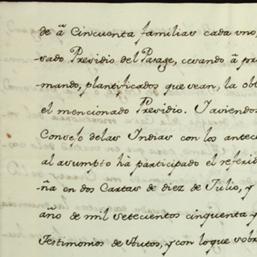 de â Cincuenta familias cada uno,
sado Presidio del Pasage, cerando â pri
mando, plantificados que vean, la ob
el mencionado Presidio. Y aviendos
Consejo de las Indias con los antece
al asumpto hà participado el referid
ña en dos Cartas de diez de Julio, y
año de mil setecientos cinquenta y
Testimonios de Autos, y con lo que sobr